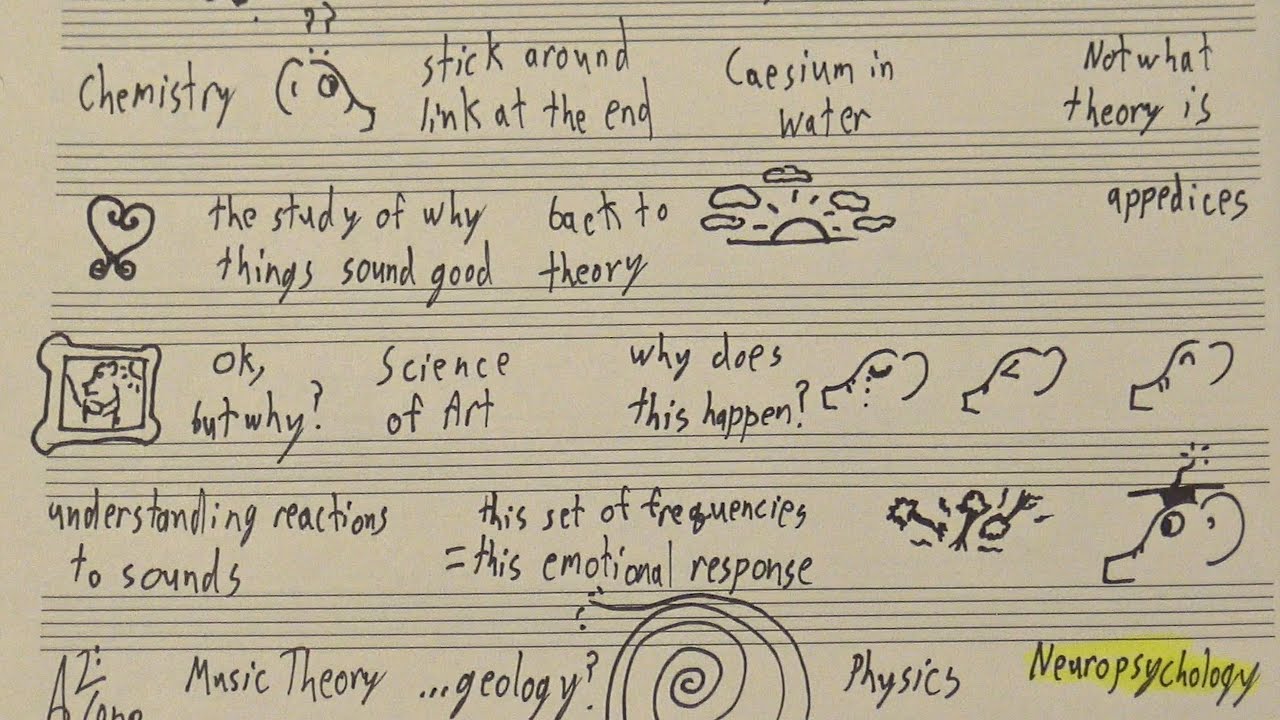 ??
Chemistry
stick around
link at the end
Caesium in
water
Not what
theory is
the study of why
things sound good
back to
theory
appedices
Ok,
but why?
Science
of Art
why does
this happen?
understanding reactions
to sounds
this set of frequencies
= this emotional response
?
Music Theory
...geology?
Physics
Neuropsychology